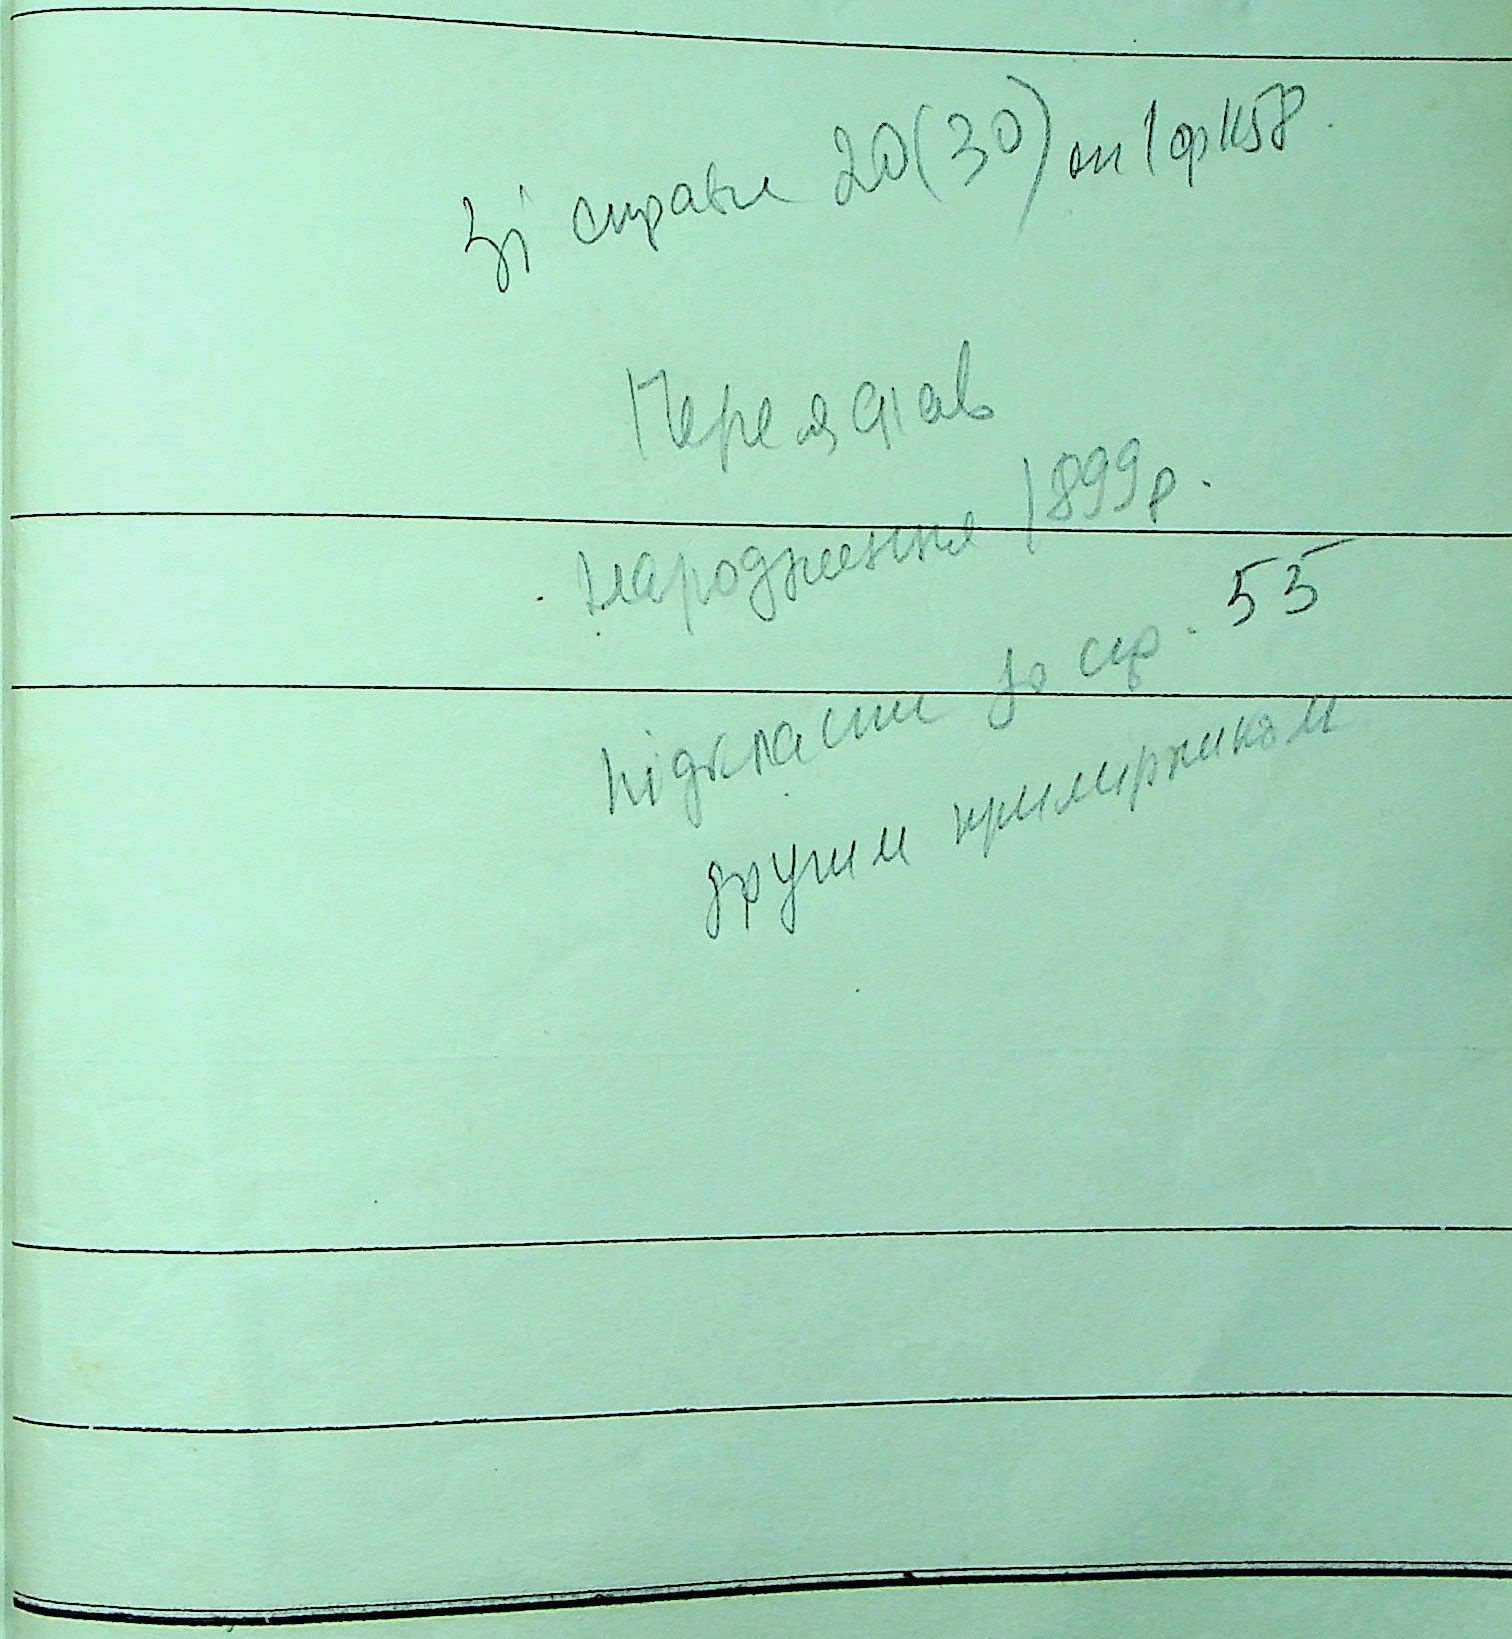 Зі справи 20(30) оп 1 ф 1158.
Переяслав
народження 1899 р.
підкласти до спр. 55
другим примірником